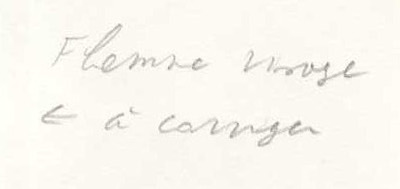 Flemme rouge
← à corriger